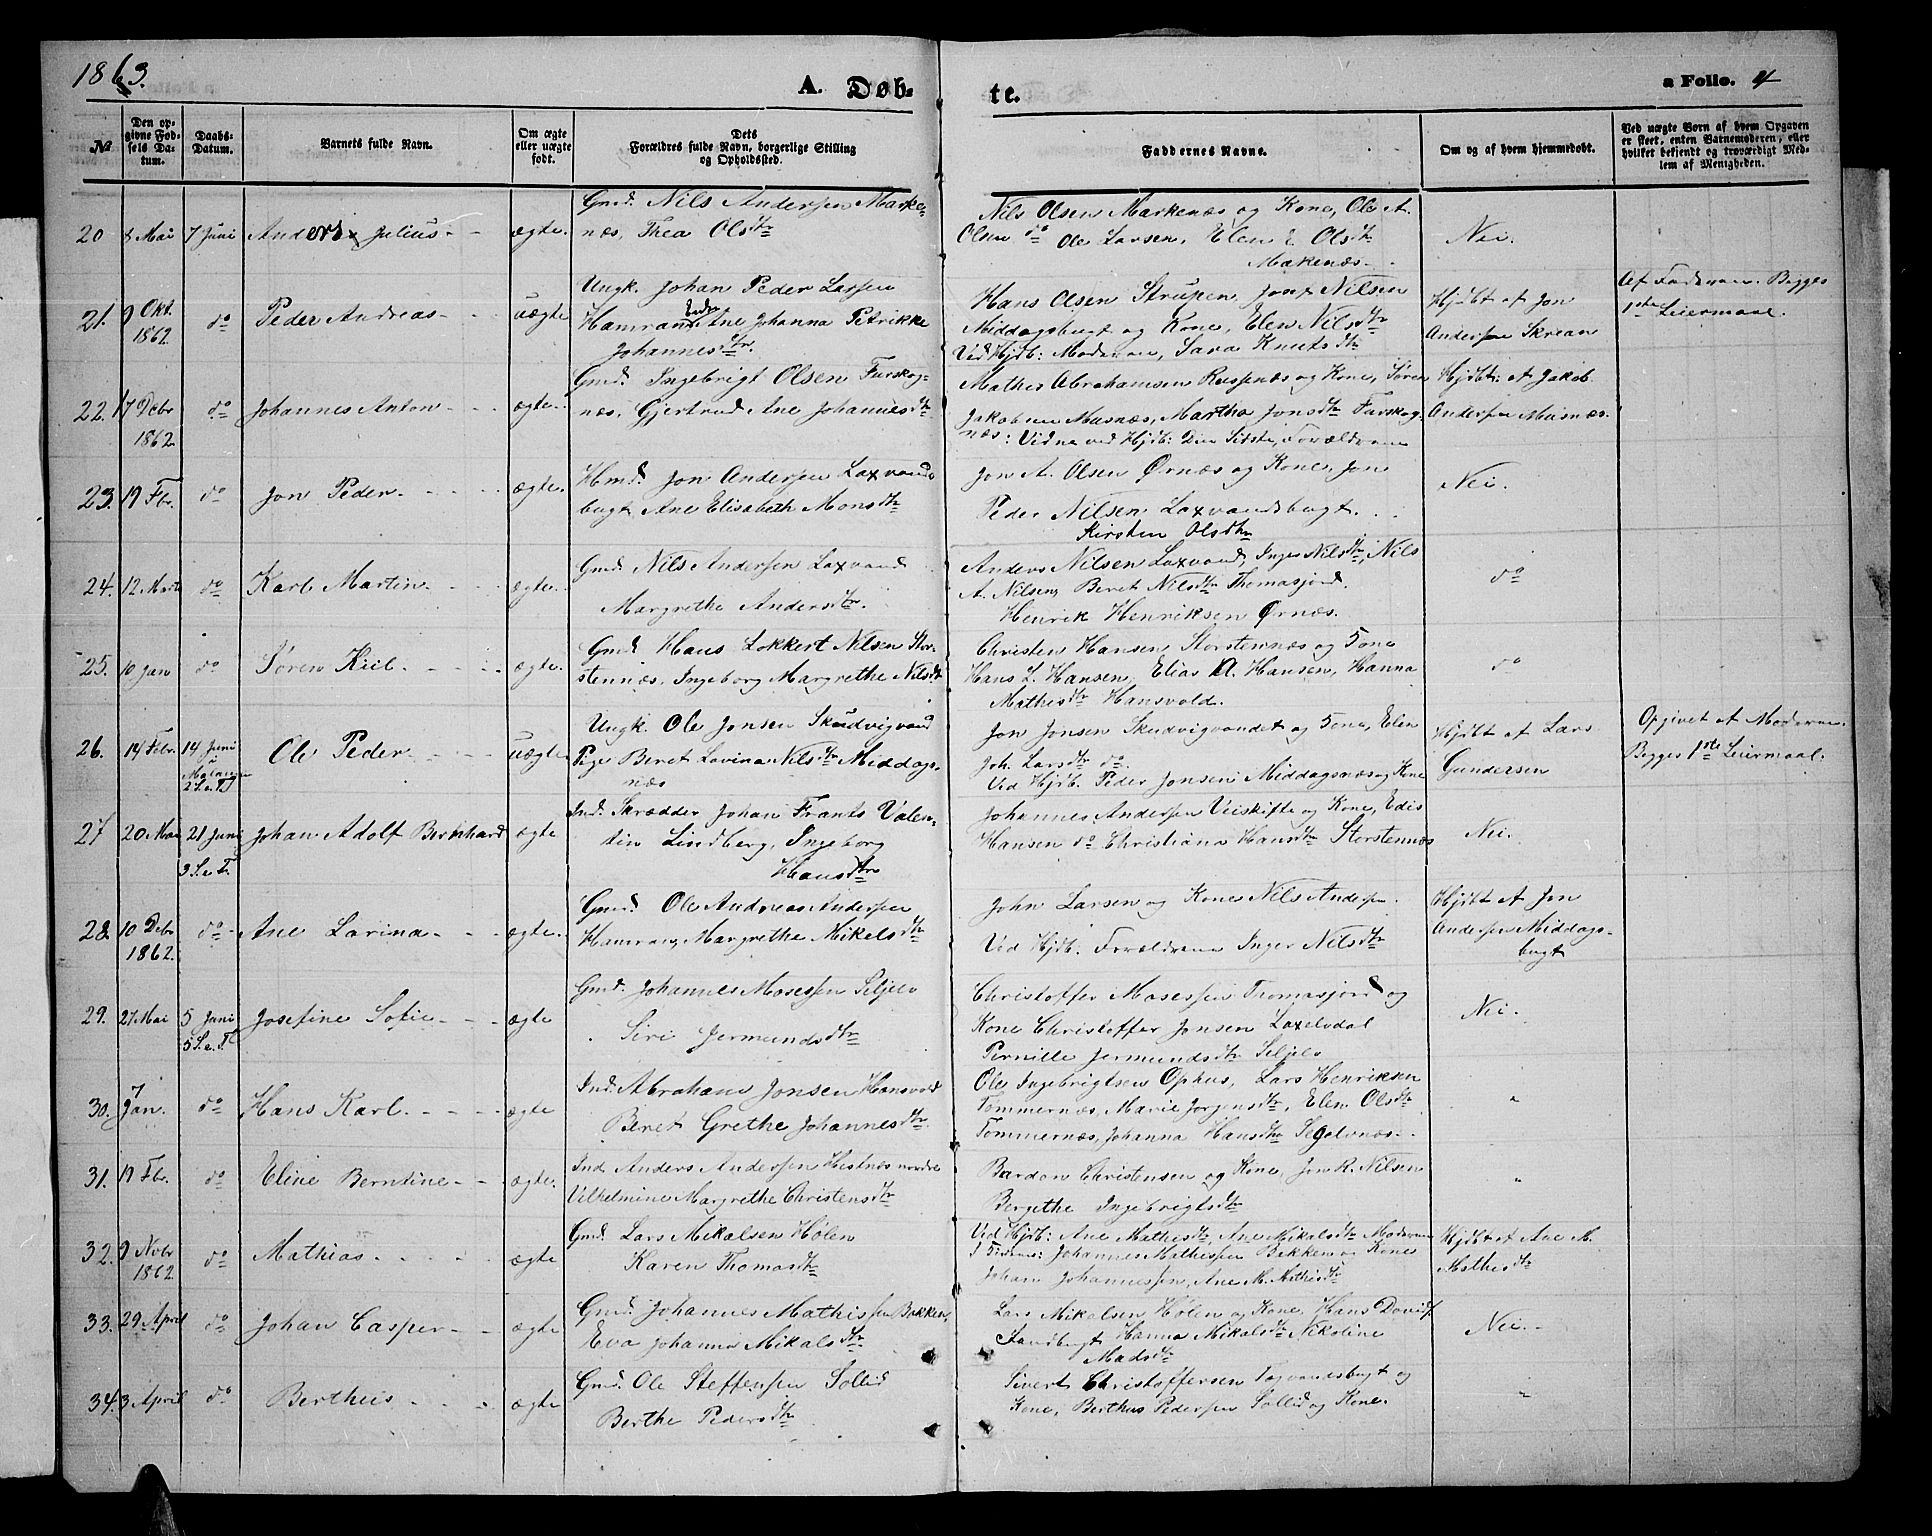 1863.
A. Døb-
te.
a Folio. 4
No
Den op-
givne Fød-
sels Da-
tum.
Daabs-
Datum.
Barnets fulde Navn.
Om ægte
eller uægte
født.
Dets
Forældres fulde Navn, borgerlige Stilling
og Opholdssted.
Faddernes Navne.
Om og af hvem hjemmedøbt.
Ved uægte Børn af hvem Opgaven
er skeet, enten Barnemoderen, eller
hvilket bekjendt og troværdigt Med-
lem af Menigheden.
20 8 Mai 7 Juni Anders Julius ægte
Gmd. Nils Andersen Marke-
næs, Thea Olsdtr
Nils Olsen Markenæs og Kone, Ole A.
Olsen do Ole Larsen, Elen E. Olsdtr
Makenæs
Nei.
21. 9 Okt. 1862 do Peder Andreas uægte
Ungk. Johan Peder Lassen
Hamran Ane Johanna Petrikke
Johannesdtr.
Hans Olsen Strupen, Nilsen
Middagsbugt og Kone, Elen Nilsdtr
Ved Hjdb: Moderen, Sara Knutsdtr
Hjdbt af Jon
Andersen Skrean
Af Faderen. Begges
1ste Leiermaal.
22. 17 Debr 1862 do Johannes Anton ægte
Gmd. Ingebrigt Olsen Furskog-
næs, Gjertrud Ane Johannesdtr
Mathis Abrahamsen Russenæs og Kone, Søren
Jakobsen Masnæs, Martha Jonsdtr Furskog-
næs: Vidne ved Hjdb: Den Sidste, Forældrene
Hjdbt: af Jakob
Andersen Masnæs.
23. 19 Fbr. do Jon Peder ægte.
Hmd. Jon Andersen Laxvand
bugt, Ane Elisabeth Monsdtr
Jon A. Olsen Ørnæs og Kone, Jon
Peder Nilsen Laxvandsbugt.
Kirsten Olsdtr
Nei.
24. 12 Marts do Karl Martin ægte.
Gmd. Nils Andersen Laxvand
Margrethe Andersdtr.
Anders Nilsen Laxvand, Inger Nilsdtr, Nils
A. Nilsen, Beret Nilsdtr Thomasjord.
Henrik Henriksen Ørnæs.
do
25. 10 Jan do Søren Kiil ægte.
Gmd. Hans Lokkert Nilsen Stor-
stennæs, Ingeborg Margrethe Nilsdtr
Christen Hansen Storstennæs og Kone
Hans L. Hansen, Elias A. Hansen, Hanna
Mathisdtr Hansvold.
do
26. 14 Febr. 14 Juni
Malangen
2 S. e. T. Ole Peder uægte
Ungk. Ole Jonsen Skudvigvand
Pige Beret Lovina Nilsdtr Middags-
næs
Jon Jonsen Skudvigvandet og Kone, Elen
Joh. Larsdtr do.
Ved Hjdb. Peder Jonsen Middagsnæs og Kone
Hjdbt af Lars
Gundersen
Opgivet af Moderen.
Begges 1ste Leiermaal.
27 20 Mai 21 Juni
3 S. e. T. Johan Adolf Bernhard ægte
Ind. Skrædder Johan Frants Valen-
tin Lindberg, Ingeborg
Hansdtr
Johannes Andersen Veiskifte og Kone, Edis
Hansen do Christiana Hansdtr Storstennæs
Nei.
28. 10 Debr 1862. do Ane Lavina ægte.
Gmd. Ole Andreas Andersen
Hamran, Margrethe Mikelsdtr
John Larsen og Kone Nils Andersen.
Ved Hjdb. Forældrene Inger Nilsdtr
Hjdbt af Jon
Andersen Middags-
bugt
29. 27 Mai 5 Juni
5 S. e. T. Josefine Sofie ægte
Gmd. Johannes Mosessen Seljelv
Siri Jermundsdtr
Christoffer Mosessen Tromasjord og
Kone Christoffer Jonsen Laxelvdal
Pernille Jermundsdtr Seljelv
Nei.
30. 7 Jan. do Hans Karl ægte
Ind. Abraham Jonsen Hansvold
Beret Grethe Johannesdtr.
Ole Ingebrigtsen Ophus, Lars Henriksen
Tommernæs, Marie Jørgensdtr, Elen Olsdtr
Tommernæs, Johanna Hansdtr Segelvnæs.
"
31. 19 Fbr. do Eline Berntine ægte.
Ind. Anders Andersen Hestnæs nordre
Vilhelmine Margrethe Christensdtr
Bardon Christensen og Kone, Jon R. Nilsen
Bergethe Ingebrigtsdtr
"
32. 9 Nobr 1862 do Mathias ægte
Gmd. Lars Mikalsen Holen
Karen Thomasdtr
Ved Hjdb: Ane Mathisdtr, Ane Mikalsdtr Moderen
Johannes Mathissen Bakken og Kone
Johan Johannessen, Ane M. Mathisdtr
Hjdbt af Ane M.
Mathisdtr
33. 29 April do Johan Casper ægte
Gmd. Johannes Mathissen Bakken,
Eva Johanna Mikalsdtr.
Lars Mikalsen Holen og Kone, Hans David
Sandbugt Hanna Mikalsdtr Nikoline
Madsdtr
Nei.
34. 3 April do Bertheus ægte
Gmd. Ole Steffensen Sollid
Berthe Pedersdtr
Sivert Christoffersen Tagvandsbugt og
Kone, Berthus Pedersen Sollid og Kone.
"